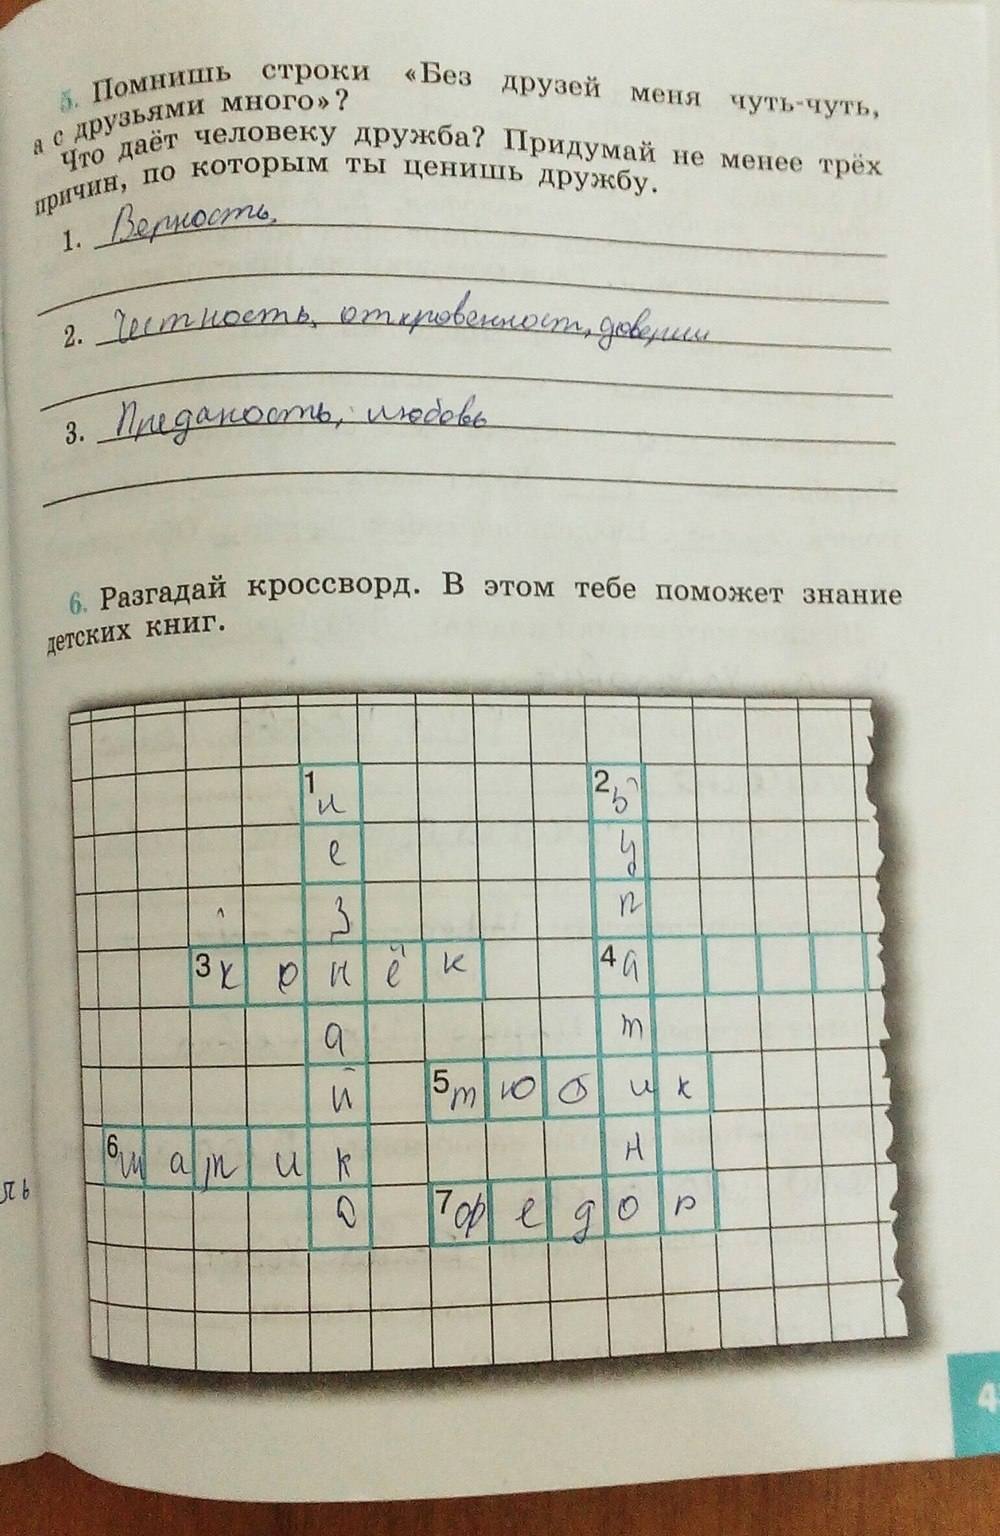 5. Помнишь строки «Без друзей меня чуть-чуть,
а с друзьями много»?
Что даёт человеку дружба? Придумай не менее трёх
причин, по которым ты ценишь дружбу.
1. Верность,
2. Честность, откровенност, доверии
3. Преданость, любовь
6. Разгадай кроссворд. В этом тебе поможет знание
детских книг.
1 н 2 б
е у
з р
3 к о н ё к 4 а
а т
й 5 т ю б и к
6 ш а р и к н
о 7 ф е д о р
ль
4